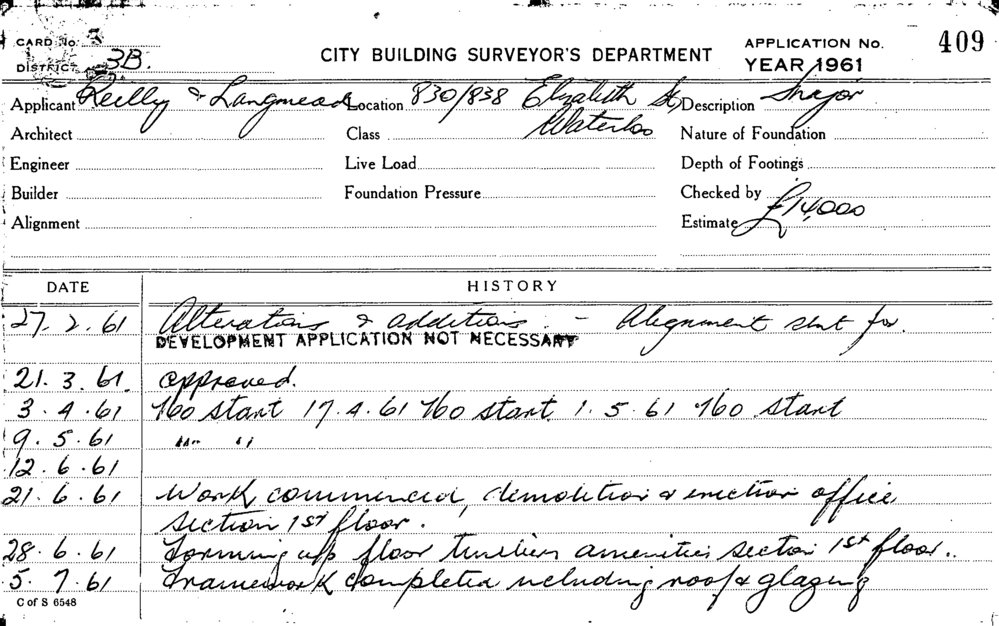 CARD No. 3
DISTRICT 3B.
CITY BUILDING SURVEYOR'S DEPARTMENT
APPLICATION No. 409
YEAR 1961
Applicant Reilly & Langmead Location 830/838 Elizabeth St, Description Major
Waterloo
Architect Class Nature of Foundation
Engineer Live Load Depth of Footings
Builder Foundation Pressure Checked by
Alignment Estimate £14,000
DATE HISTORY
27.2.61 Alterations & additions. - Alignment sent for.
DEVELOPMENT APPLICATION NOT NECESSARY
21.3.61. approved.
3.4.61 No start 17.4.61 No start. 1.5.61 No start
9.5.61 " "
12.6.61
21.6.61 Work commenced, demolition & erection office
section 1st floor.
28.6.61 Forming up floor timbers amenities section 1st floor..
5.7.61 Framework completed including roof & glazing
C of S 6548